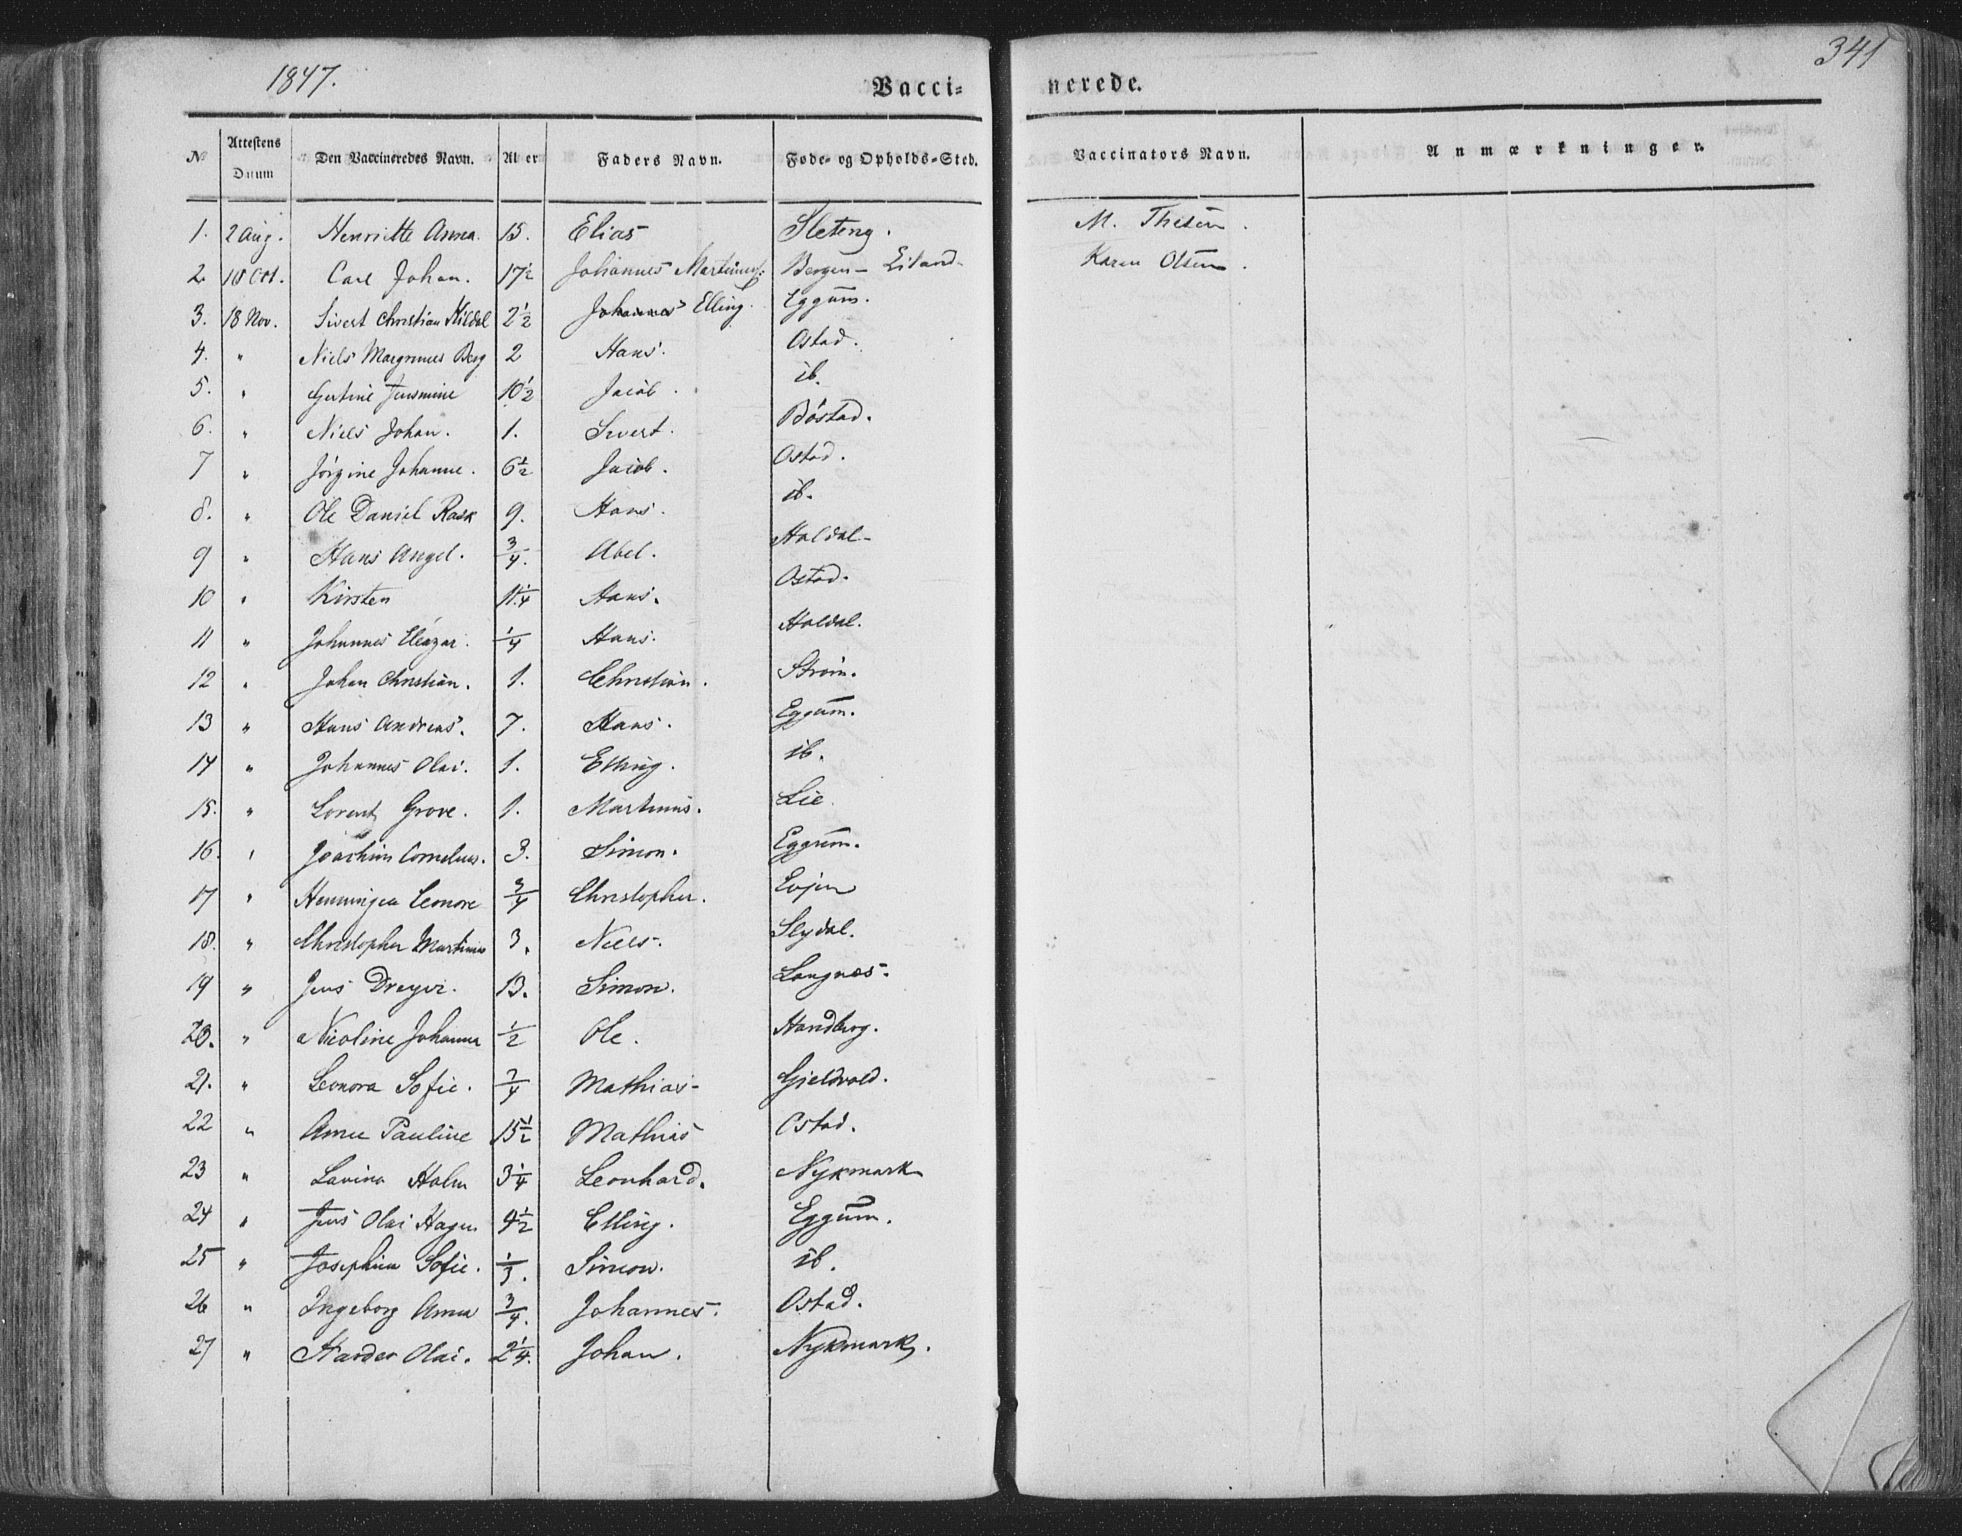 1847.
Vacci-
nerede.
341
№ Attestens Datum Den Vaccineredes Navn. Alder Faders Navn. Føde- og Opholds-Sted. Vaccinators Navn. Anmærkninger.
1. 2 Aug. Henriette Anna. 15. Elias Sleteng. M. Thesen.
2. 18 Oct. Carl Johan. 17½ Johannes Bergen- Eiland- Karen Olsen.
3. 18 Nov. Sivert Christian Hildal 2½ Johannes Elling. Eggum.
4. " Niels Berg 2 Hans. Ostad.
5. " Gertine Jensmine 10½ Jacob. ib.
6. " Niels Johan. 1. Sivert. Böstad.
7 " Jörgine Johanne. 6½ Jacob. Ostad.
8. " Ole Daniel Rask 9. Hans. ib.
9 " Hans Angel. ¾. Abel. Haldal-
10 " Kirsten 11¼ Hans. Ostad.
11 " Johannes Eleazar. ¼ Hans. Haldal.
12 " Johan Christian. 1. Christian. Ström.
13 " Hans Andreas. 7. Hans. Eggum.
14 " Johannes Olai. 1. Elling. ib.
15. " Lorents Grove. 1. Martinus. Lie
16. " Joachim Cornelius. 3. Simon. Eggum.
17 " Henningea Leonore ¾ Christopher. Evjen
18. " Christopher Martinus 3. Niels. Slydal.
19 " Jens Dreyer. 13. Simon. Langnæs.
20. " Nicoline Johanna ½ Ole. Handberg.
21. " Leonora Sofie. ¾ Mathias- Gjeldvold.
22 " Anne Pauline 15½ Mathias Ostad.
23 " Lavina Holm 3¼ Leonhard. Nykmark
24 " Jens Olai Hagen 4½ Elling. Eggum.
25 " Josephina Sofie. ⅓. Simon. ib.
26 " Ingeborg Anna ¾. Johannes. Ostad.
27 " Harder Olai. 2¼. Johan. Nykmark.